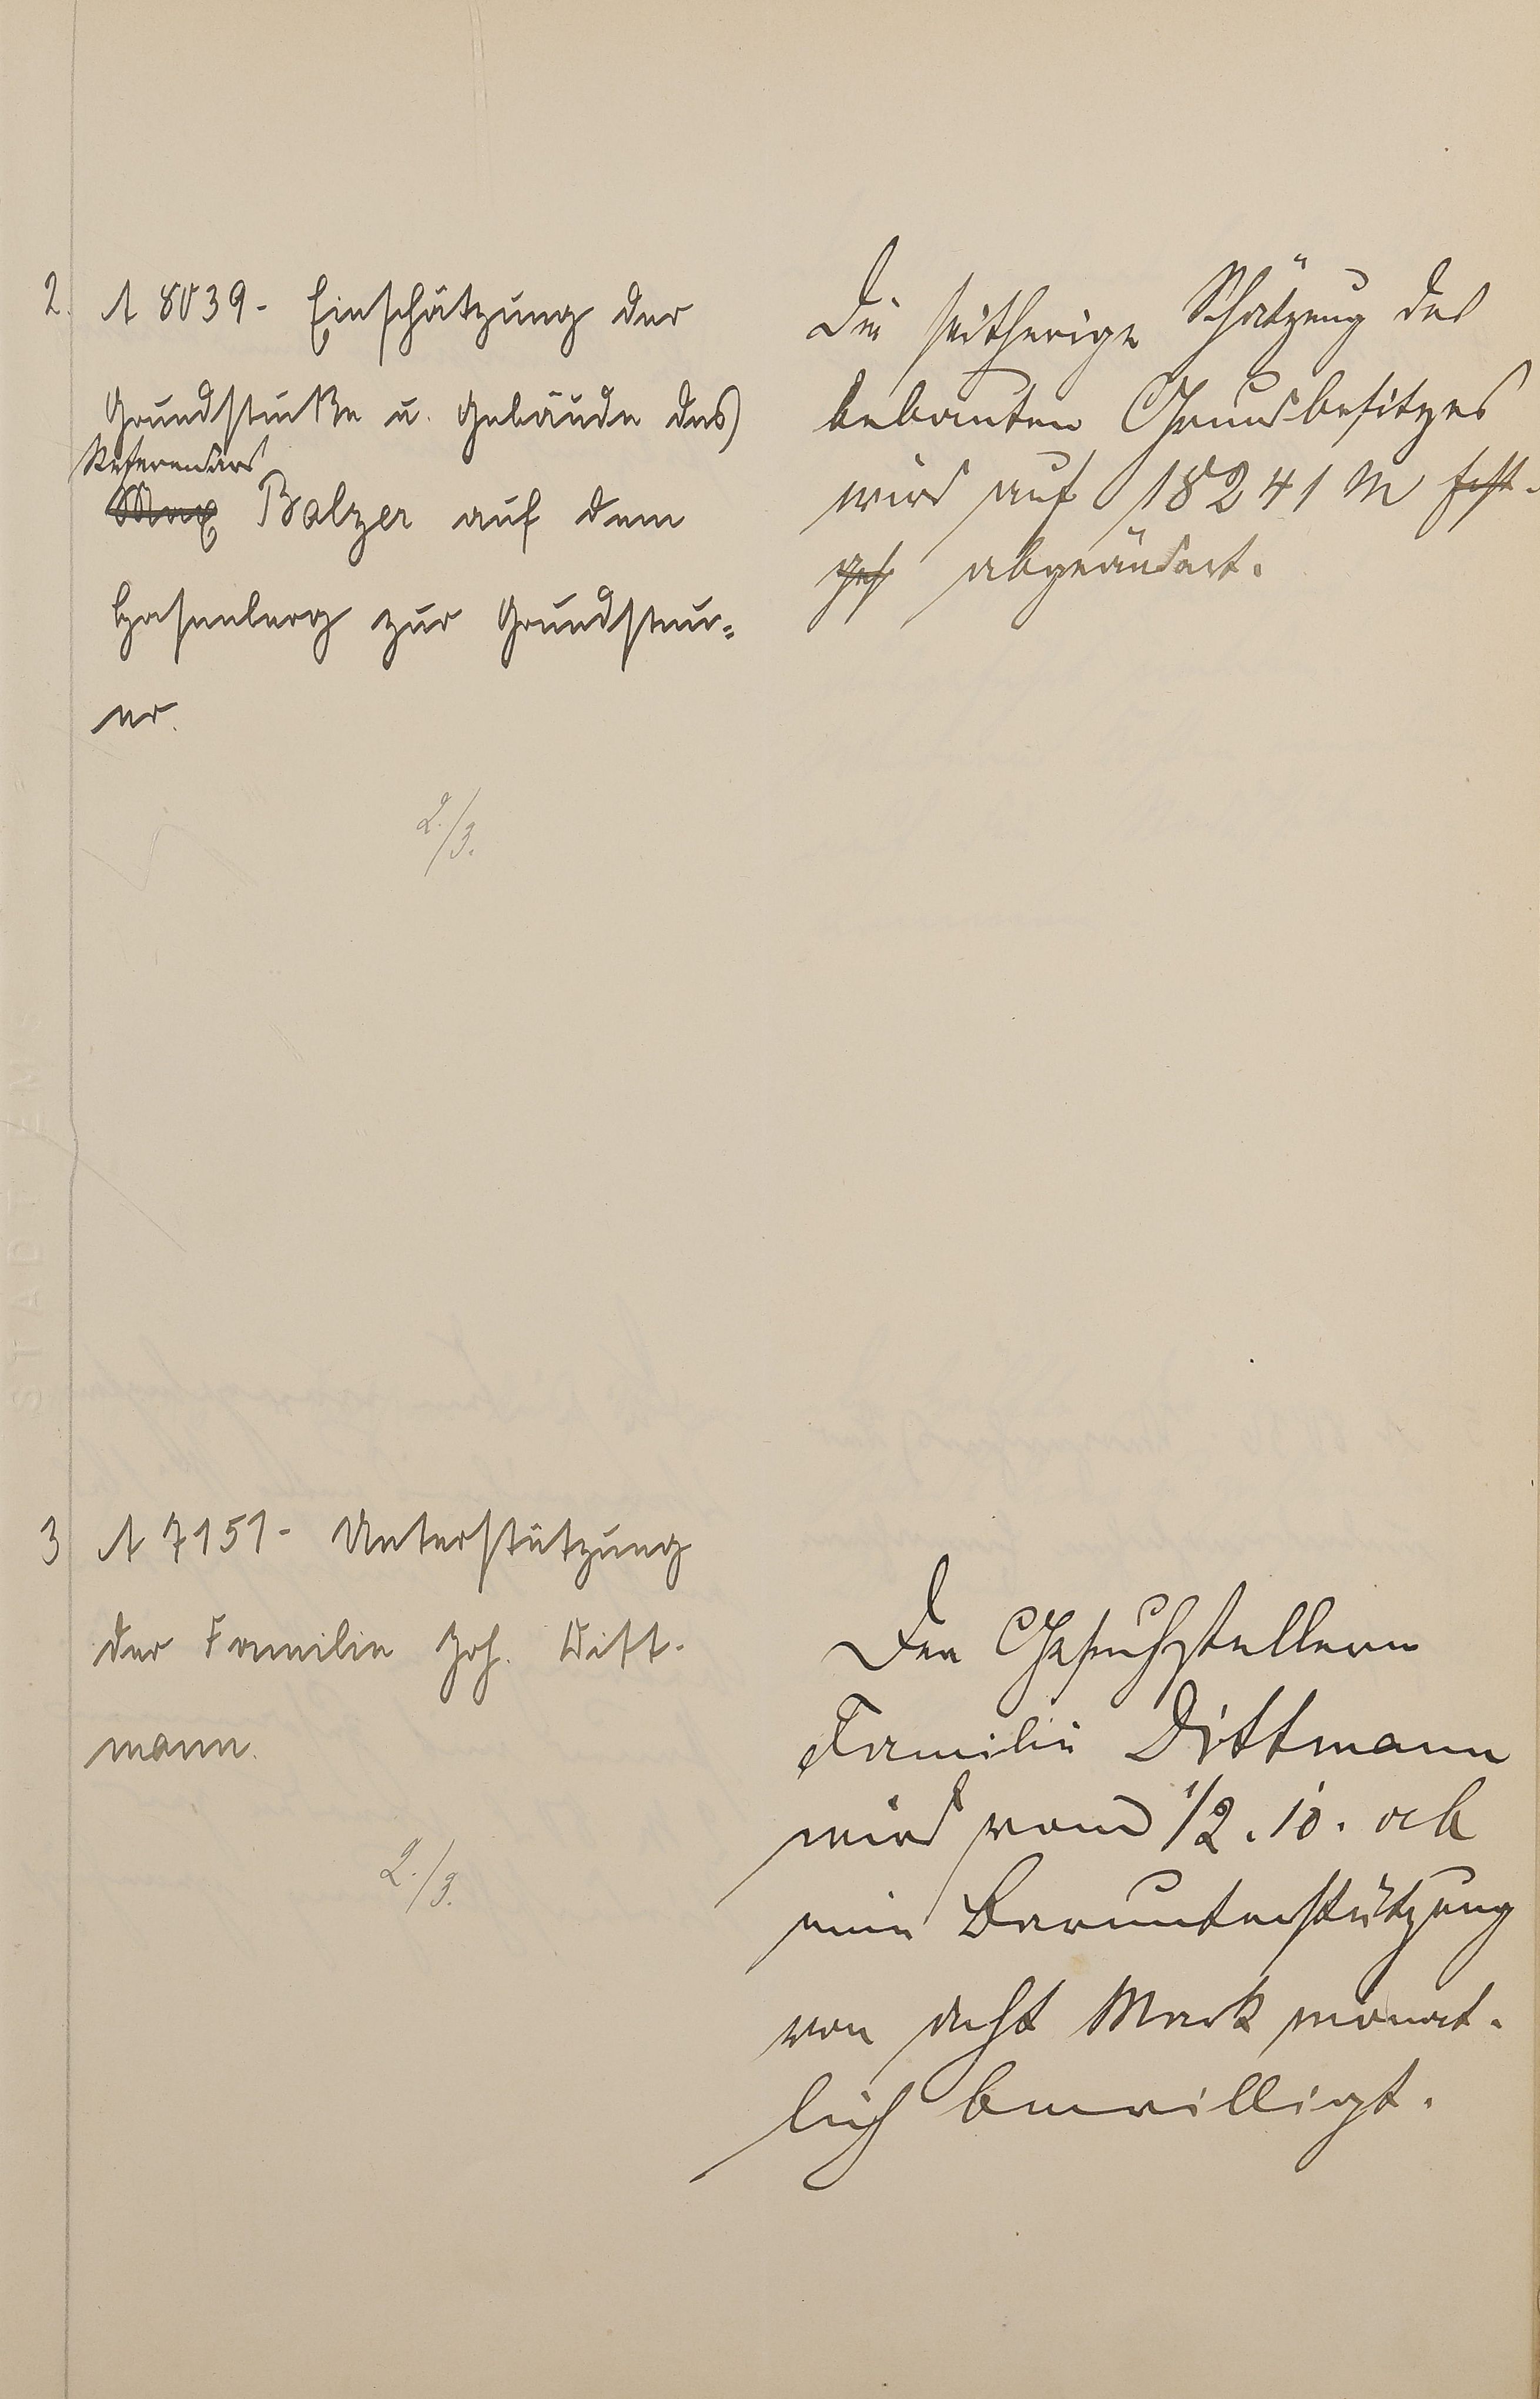 2. A 8039 - Einschätzung der
Grundstücke u. Gebäude des
Referendars
Max Balzer auf dem
Hasenberg zur Grundsteu=
er.
2./3.
Die seitherige Schätzung des
bebauten Grundbesitzes
wird auf 18241 M fest-
ges abgeändert.
3 A 7151 - Unterstützung
der Familie Joh. Ditt-
mann.
2./3.
Den Gesuchstellern
Familie Dittmann
wird vom 1/2. 10. ab
eine Barunterstützung
von acht Mark monat-
lich bewilligt.
STADT EMS